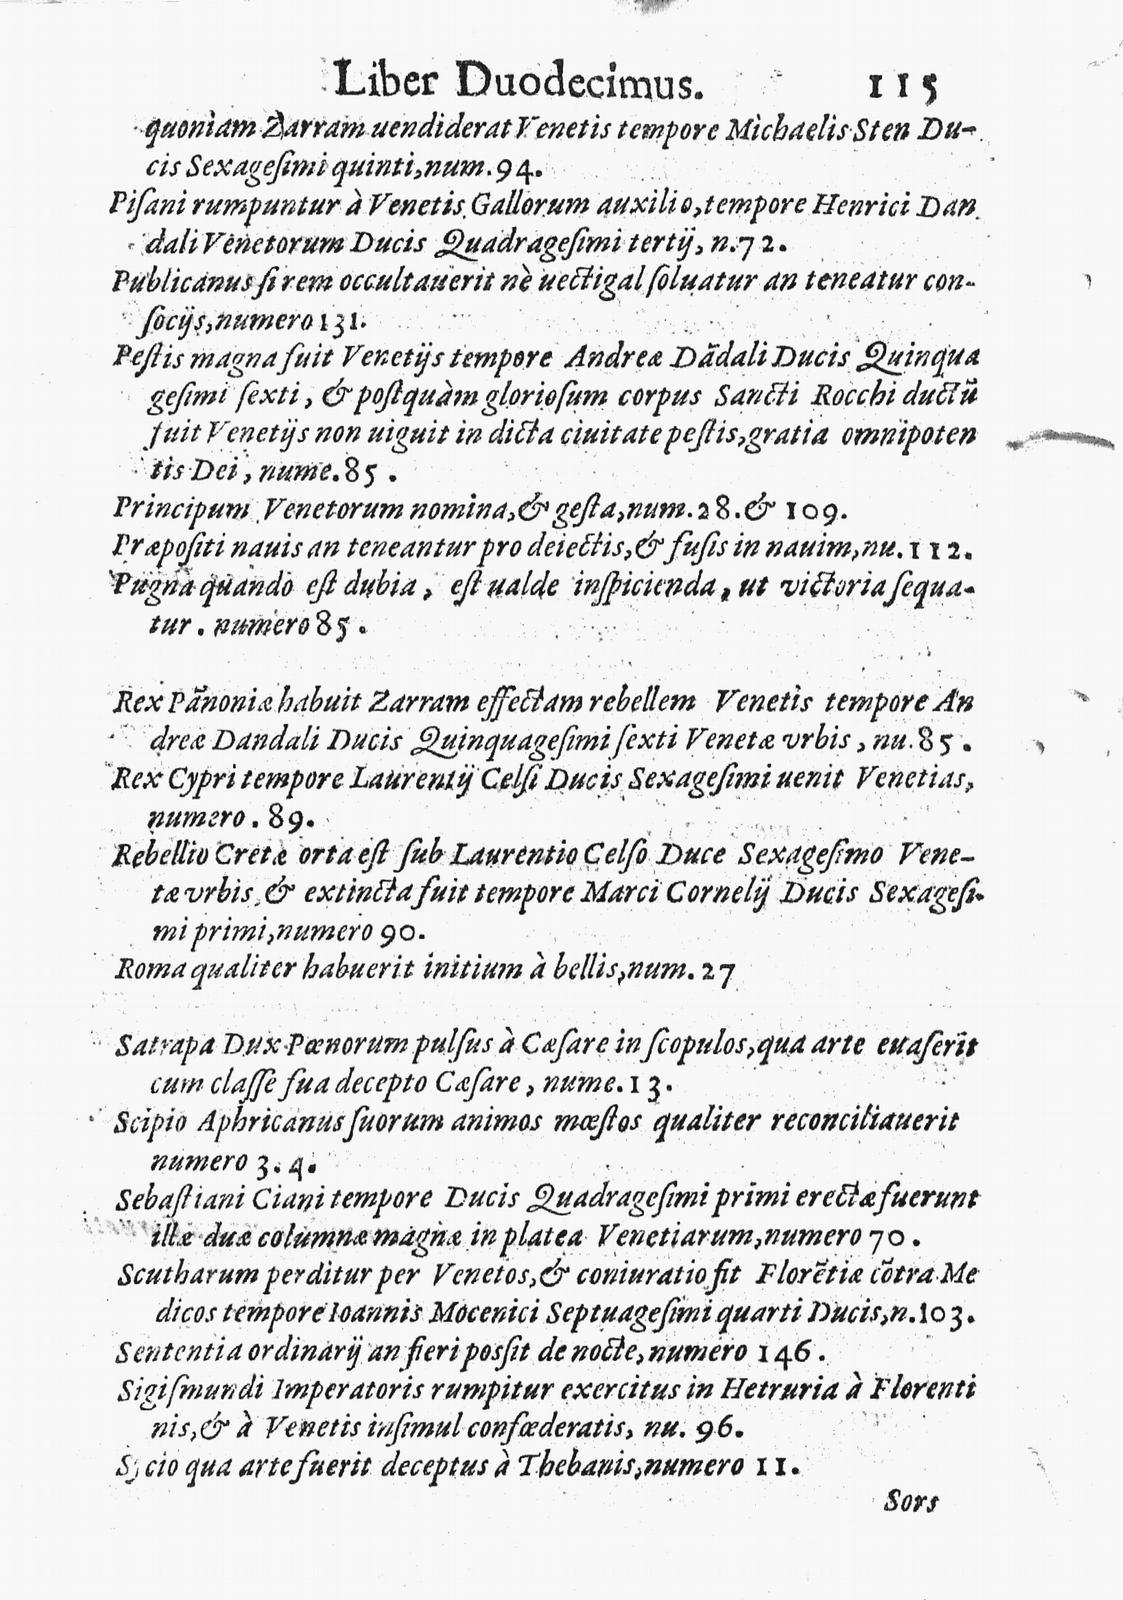 Liber Duodecimus. 115
quoniam Zarram uendiderat Venetis tempore Michaelis Sten Du-
cis Sexageſimi quinti, num.94.
Piſani rumpuntur à Venetis Gallorum auxilio, tempore Henrici Dan
dali Venetorum Ducis Quadrageſimi tertij, n.72.
Publicanus ſi rem occultauerit nè uectigal ſoluatur an teneatur con-
ſocijs, numero 131.
Peſtis magna fuit Venetijs tempore Andreæ Dādali Ducis Quinqua
geſimi ſexti, & poſtquàm glorioſum corpus Sancti Rocchi ductū
fuit Venetijs non uiguit in dicta ciuitate peſtis, gratia omnipoten
tis Dei, nume.85.
Principum Venetorum nomina, & geſta, num.28.& 109.
Præpoſiti nauis an teneantur pro deiectis, & fuſis in nauim, nu.112.
Pugna quando eſt dubia, eſt ualde inſpicienda, ut victoria ſequa-
tur. numero 85.
Rex Pānoniæ habuit Zarram effectam rebellem Venetis tempore An
dreæ Dandali Ducis Quinquageſimi ſexti Venetæ vrbis, nu.85.
Rex Cypri tempore Laurentij Celſi Ducis Sexageſimi uenit Venetias,
numero. 89.
Rebellio Cretæ orta eſt ſub Laurentio Celſo Duce Sexageſimo Vene-
tæ vrbis, & extincta fuit tempore Marci Cornelij Ducis Sexageſi-
mi primi, numero 90.
Roma qualiter habuerit initium à bellis, num.27
Satrapa Dux Pœnorum pulſus à Cæſare in ſcopulos, qua arte euaſerit
cum claſſe ſua decepto Cæſare, nume.13.
Scipio Aphricanus ſuorum animos mœſtos qualiter reconciliauerit
numero 3.4.
Sebaſtiani Ciani tempore Ducis Quadrageſimi primi erectæ fuerunt
illæ duæ columnæ magnæ in platea Venetiarum, numero 70.
Scutharum perditur per Venetos, & coniuratio fit Florētiæ cōtra Me
dicos tempore Ioannis Mocenici Septuageſimi quarti Ducis, n.103.
Sententia ordinarij an fieri possit de nocte, numero 146.
Sigiſmundi Imperatoris rumpitur exercitus in Hetruria à Florenti
nis, & à Venetis inſimul confœderatis, nu. 96.
qua arte fuerit deceptus à Thebanis, numero 11.
Sors